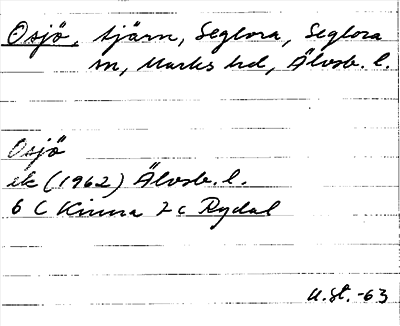 Osjö, tjärn, Seglora, Seglora
sn, Marks hd, Älvsb. l.
Osjö
ek (1962) Älvsb. l.
6 C Kinna 7 c Rydal
U. St. -63